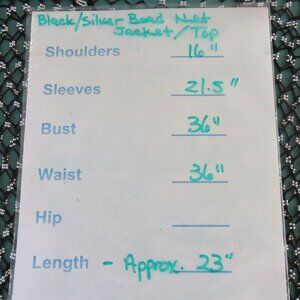 Black/Silver Bead Net
Jacket/Top
Shoulders 16"
Sleeves 21.5"
Bust 36"
Waist 36"
Hip
Length - Approx. 23"